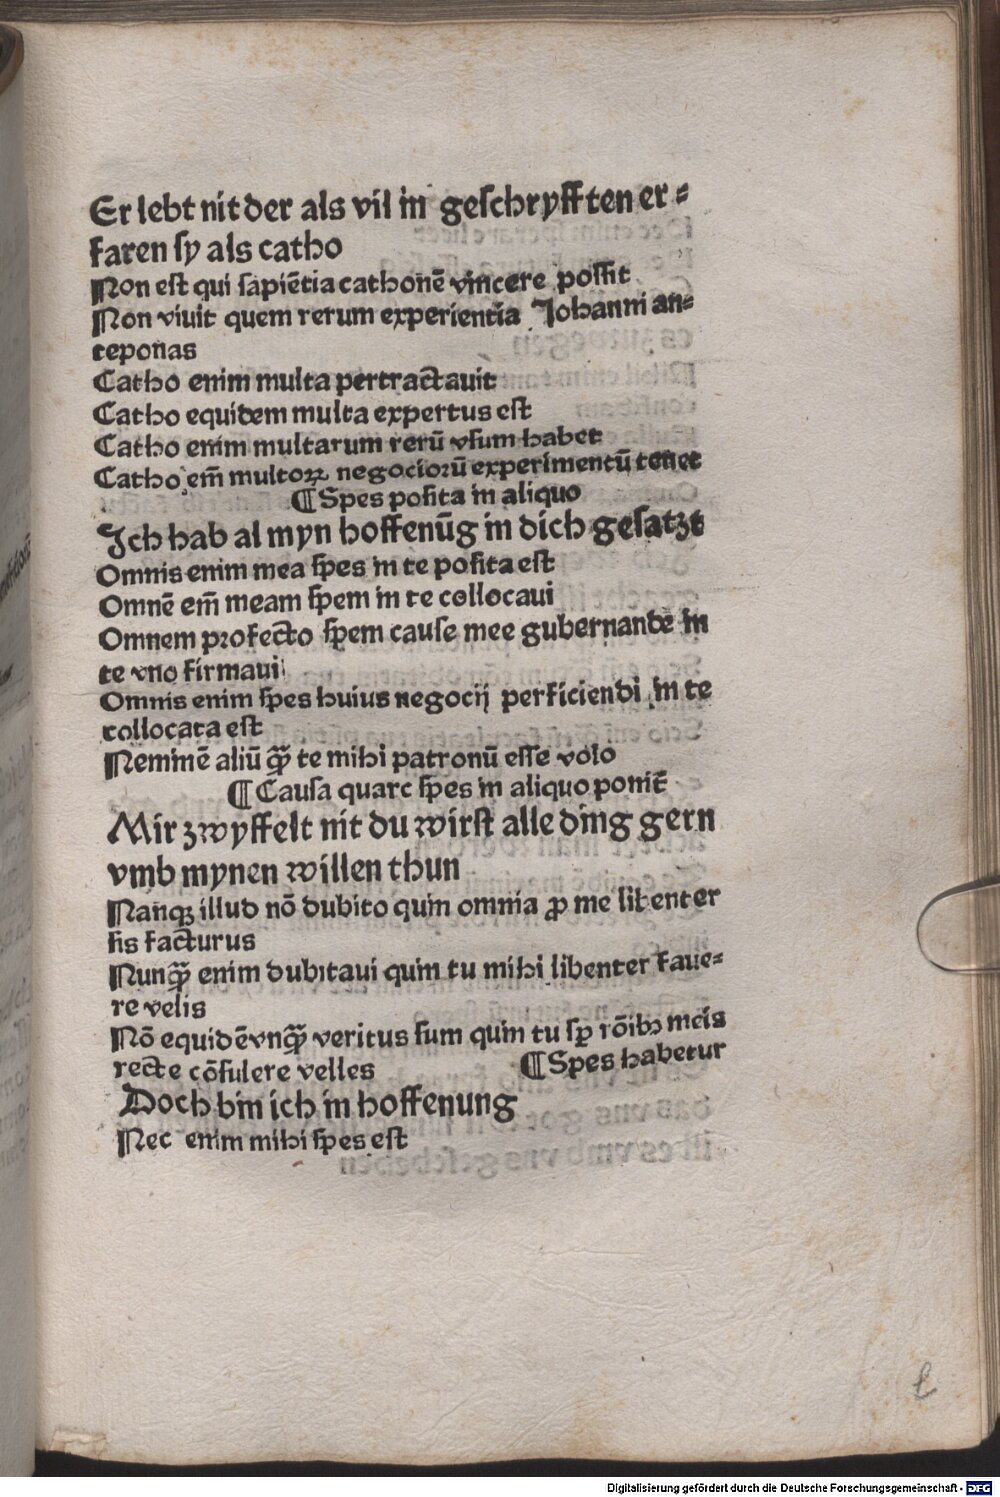 Er lebt nit der als vil in geschryfften er⸗
faren sy als catho
Non est qui sapiētia cathonē vincere possit
Non viuit quem rerum experientia Johanni an⸗
teponas
Catho enim multa pertractauit
Catho equidem multa expertus est
Catho enim multarum rerū vsum habet
Catho em̄ multoꝝ negociorū experimentū tenet
¶ Spes posita in aliquo
Ich hab al myn hoffenūg in dich gesatzt
Omnis enim mea spes in te posita est
Omnē em̄ meam spem in te collocaui
Omnem profecto spem cause mee gubernande in
te vno firmaui
Omnis enim spes huius negocij perficiendi in te
collocata est
Neminē aliū q̄ꝫ te mihi patronū esse volo
¶ Causa quare spes in aliquo ponit᷑
Mir zwyffelt nit du wirst alle ding gern
vmb mynen willen thun
Nanqꝫ illud nō dubito quin omnia ꝓ me libenter
sis facturus
Nunq̄ꝫ enim dubitaui quin tu mihi libenter faue⸗
re velis
Nō equidē vnq̄ꝫ veritus sum quin tu sꝑ rōibꝫ meis
recte cōsulere velles ¶ Spes habetur
Doch bin ich in hoffenung
Nec enim mihi spes est
Digitalisierung gefördert durch die Deutsche Forschungsgemeinschaft - DFG